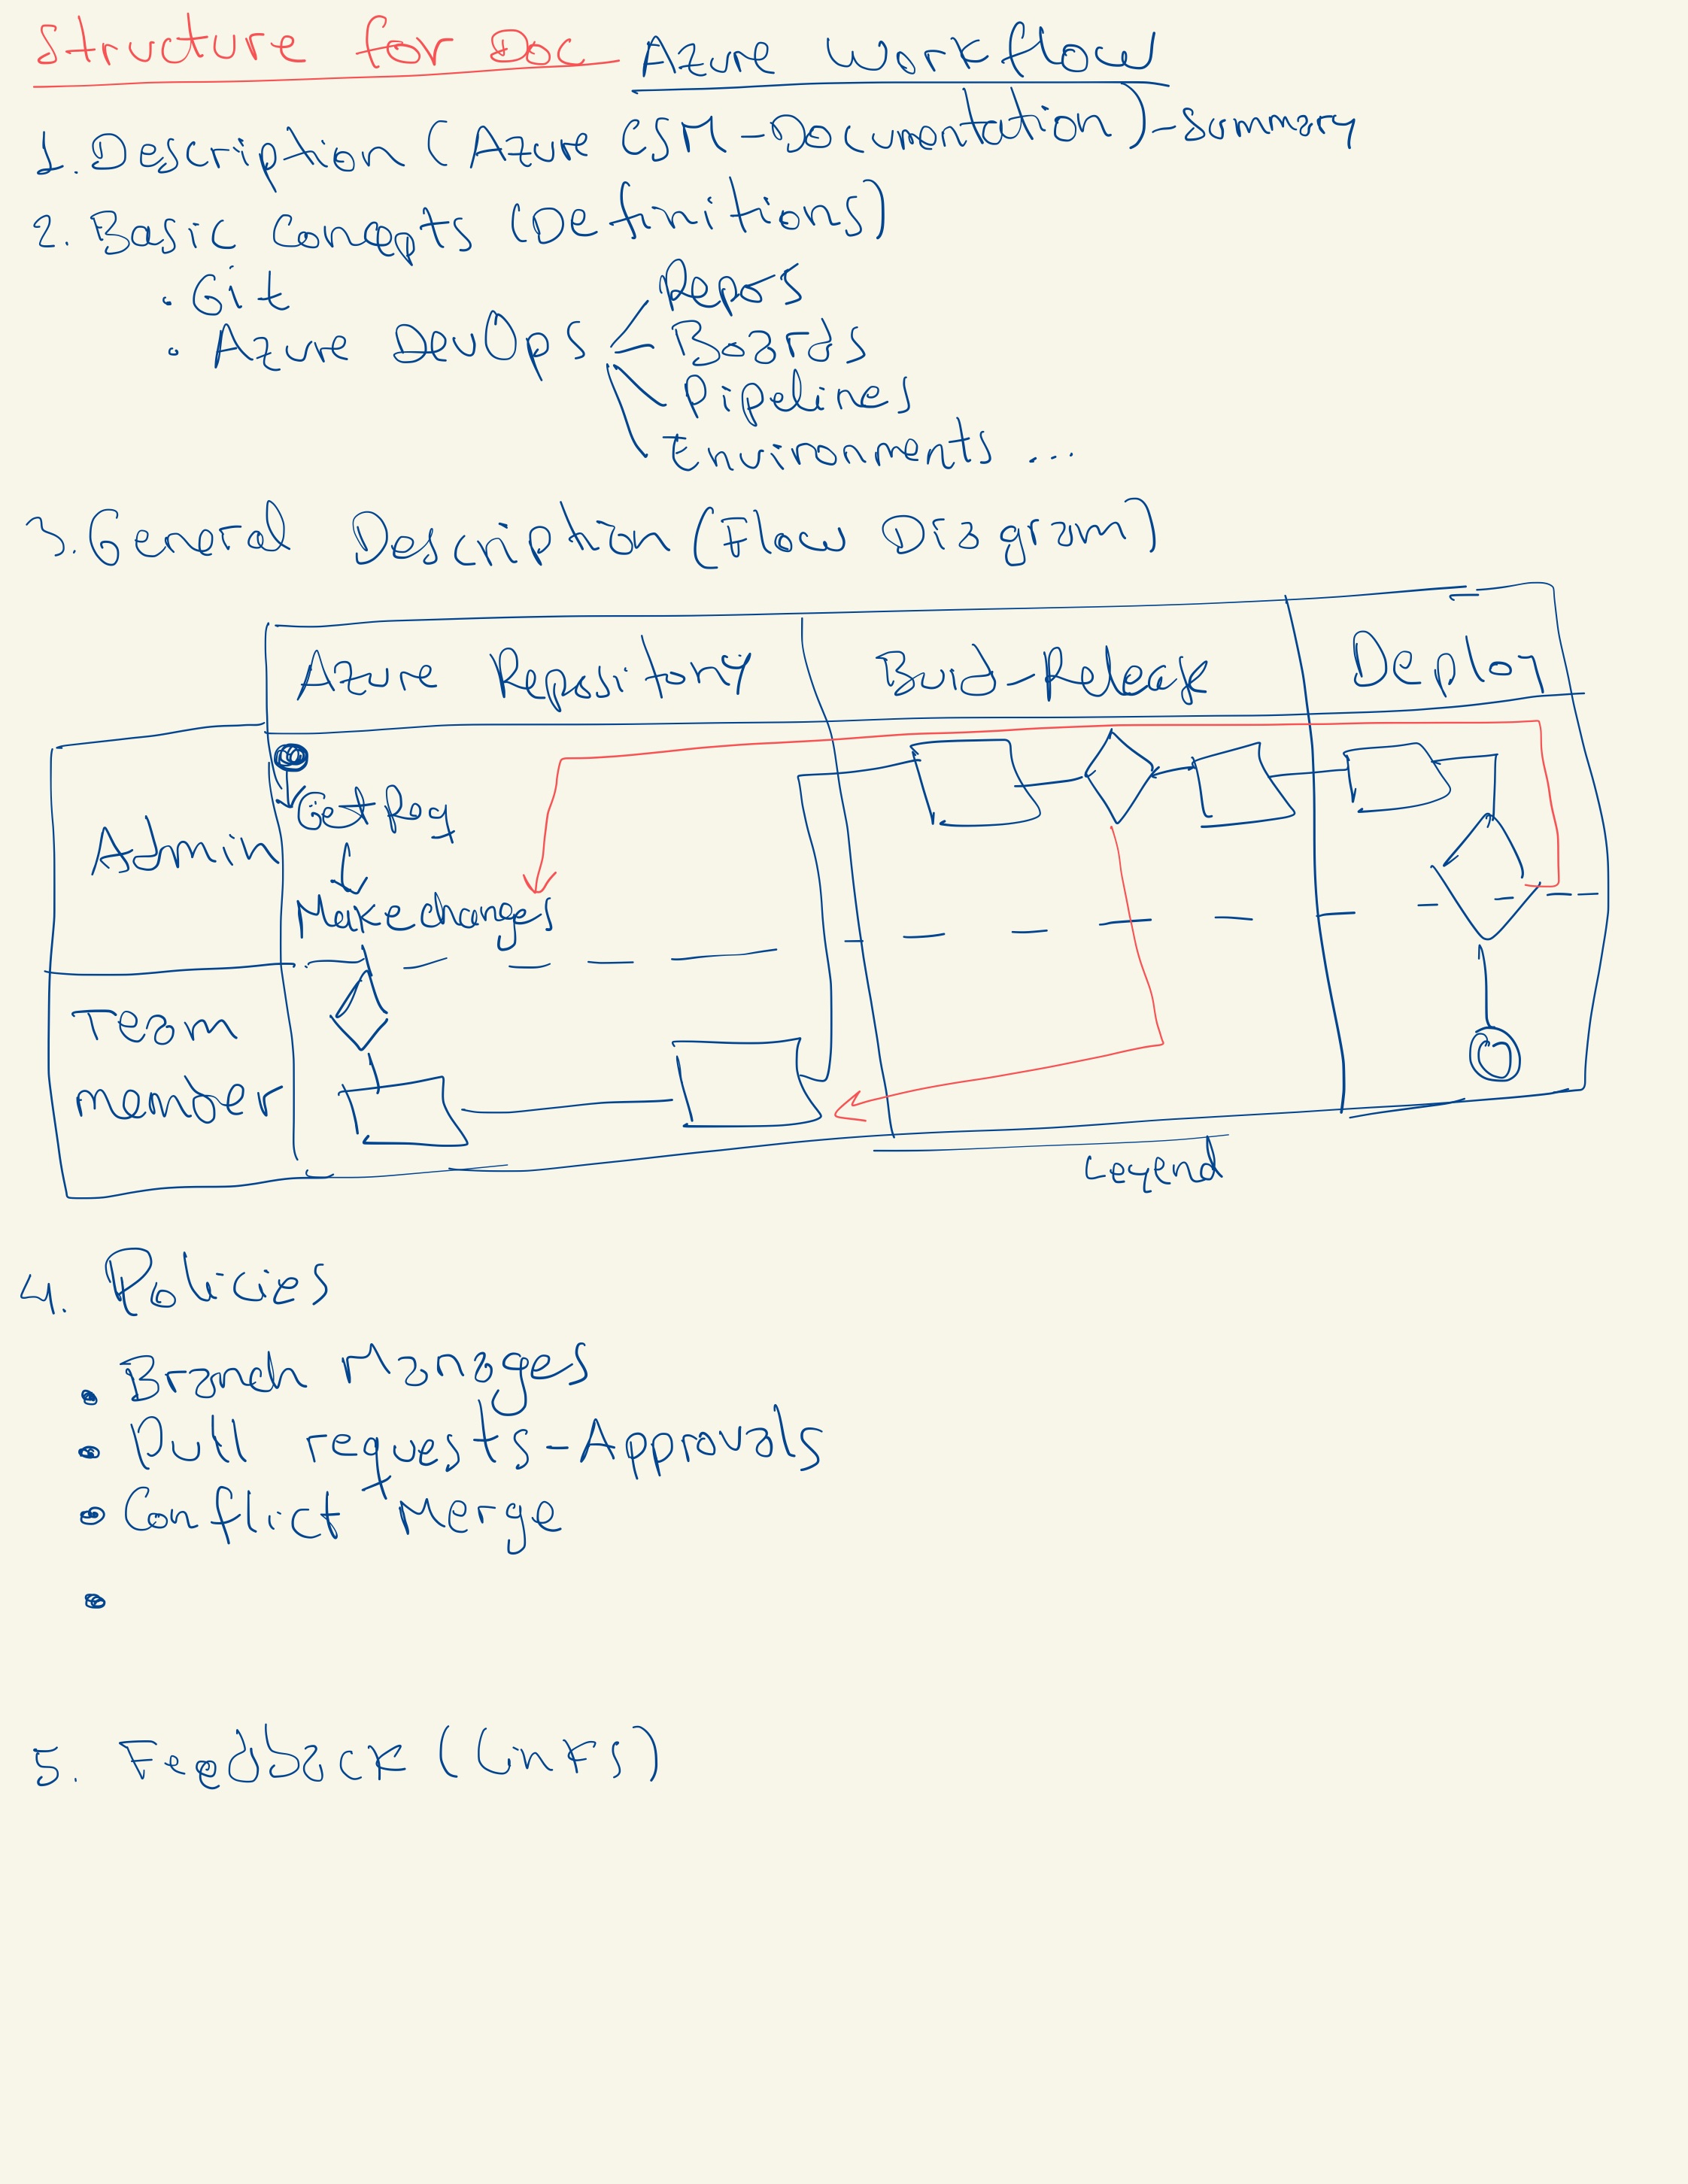 Structure for Doc Azure Workflow
1. Description (Azure CSM-Documentation)-Summary
2. Basic Concepts (Definitions)
• Git
Repos
• Azure DevOps Boards
Pipelines
Environments ...
3. General Description (Flow Diagram)
Azure Repository Buid-Release Deploy
Get Req
Admin
Make changes
Team
member
Legend
4. Policies
• Branch Manages
• Pull requests-Approvals
• Conflict Merge
•
5. Feedback (Links)